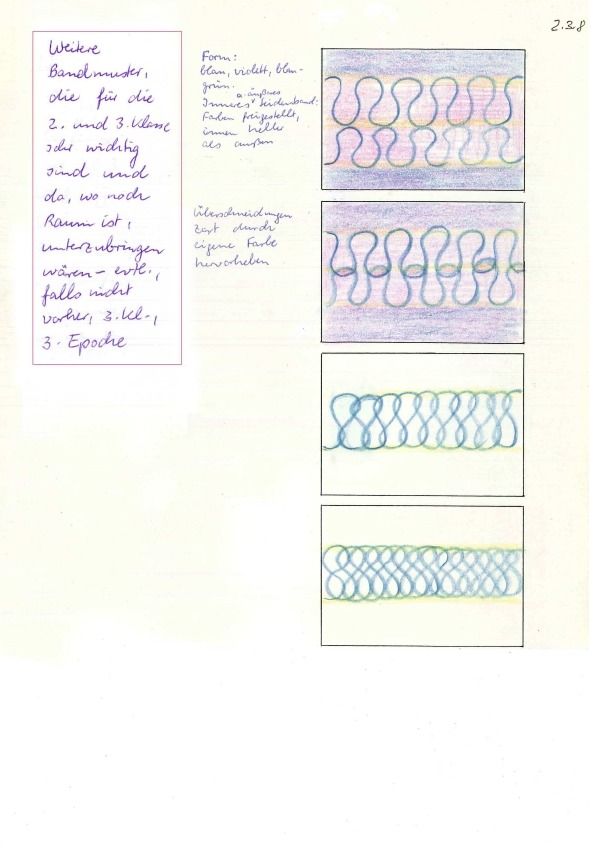 2.3.8
Weitere
Bandmuster,
die für die
2. und 3. Klasse
sehr wichtig
sind und
da, wo noch
Raum ist,
unterzubringen
wären - evtl.,
falls nicht
vorher, 3. Kl.,
3. Epoche
Form:
blau, violett, blau-
grün.
u. äußeres
Inneres Seidenband:
Farben freigestellt,
innen heller
als außen
Überschneidungen
zart durch
eigene Farbe
hervorheben